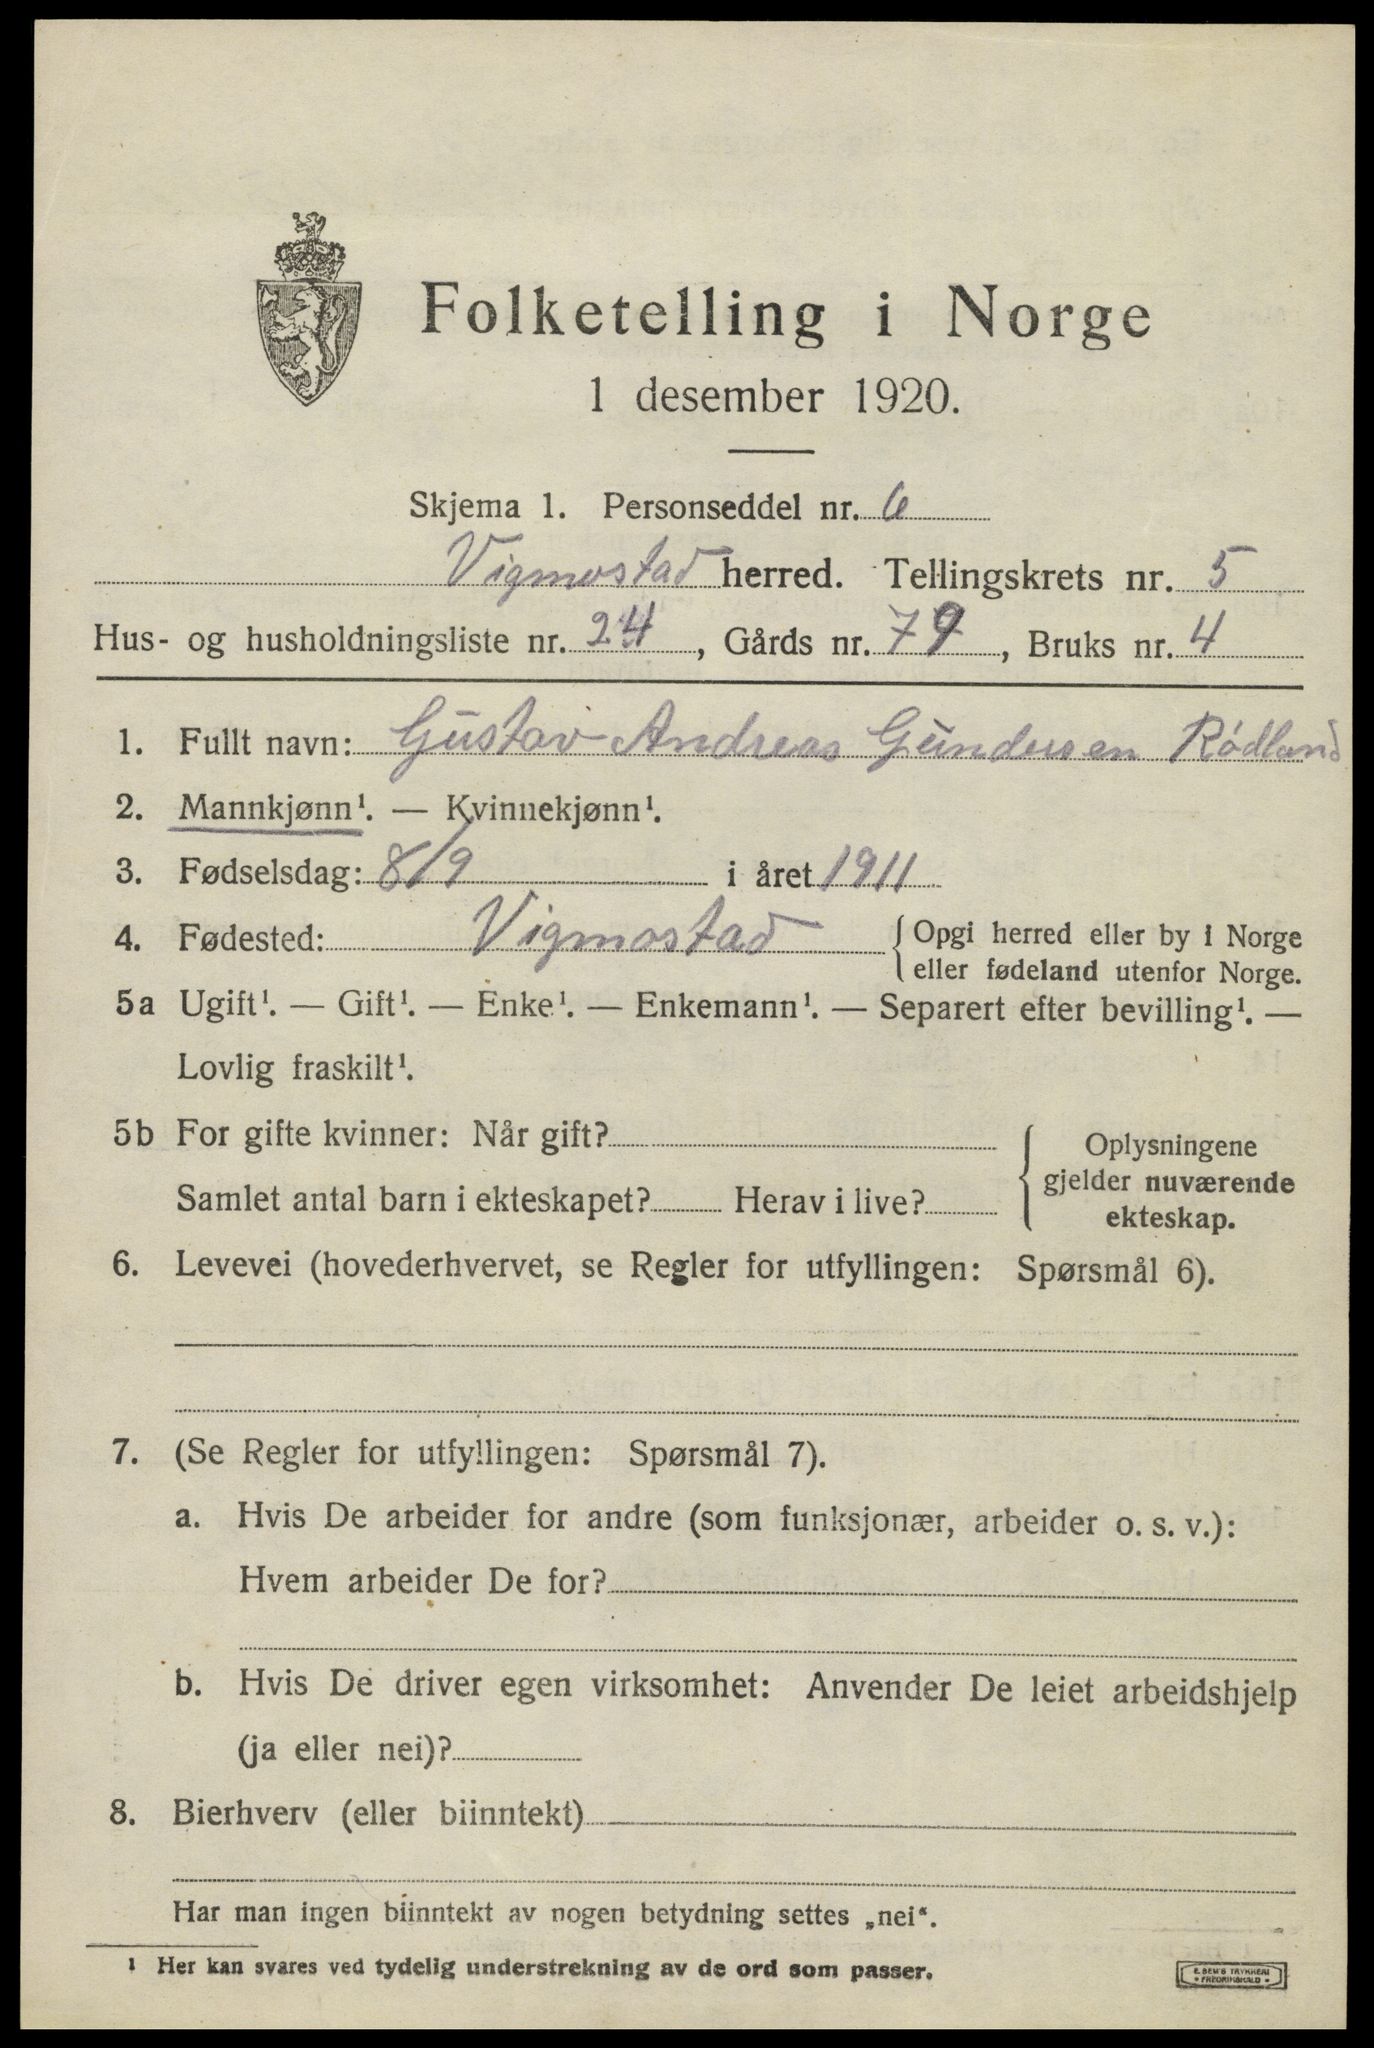 Folketelling i Norge
1 desember 1920.
Skjema 1. Personseddel nr. 6
Vigmostad herred. Tellingskrets nr. 5
Hus- og husholdningsliste nr. 24, Gårds nr. 79, Bruks nr. 4
1. Fullt navn: Gustav Andreas Gundersen Rödland
2. Mannkjønn¹. — Kvinnekjønn¹.
3. Fødselsdag: 8/9 i året 1911
4. Fødested: Vigmostad { Opgi herred eller by i Norge
eller fødeland utenfor Norge.
5a Ugift¹. — Gift¹. — Enke¹. — Enkemann¹. — Separert efter bevilling¹. —
Lovlig fraskilt¹.
5b For gifte kvinner: Når gift?
Samlet antal barn i ekteskapet? Herav i live?
{ Oplysningene
gjelder nuværende
ekteskap.
6. Levevei (hovederhvervet, se Regler for utfyllingen: Spørsmål 6).
7. (Se Regler for utfyllingen: Spørsmål 7).
a. Hvis De arbeider for andre (som funksjonær, arbeider o. s. v.):
Hvem arbeider De for?
b. Hvis De driver egen virksomhet: Anvender De leiet arbeidshjelp
(ja eller nei)?
8. Bierhverv (eller biinntekt)
Har man ingen biinntekt av nogen betydning settes „nei“.
¹ Her kan svares ved tydelig understrekning av de ord som passer.
E. SEM'S TRYKKERI
• FREDRIKSHALD •